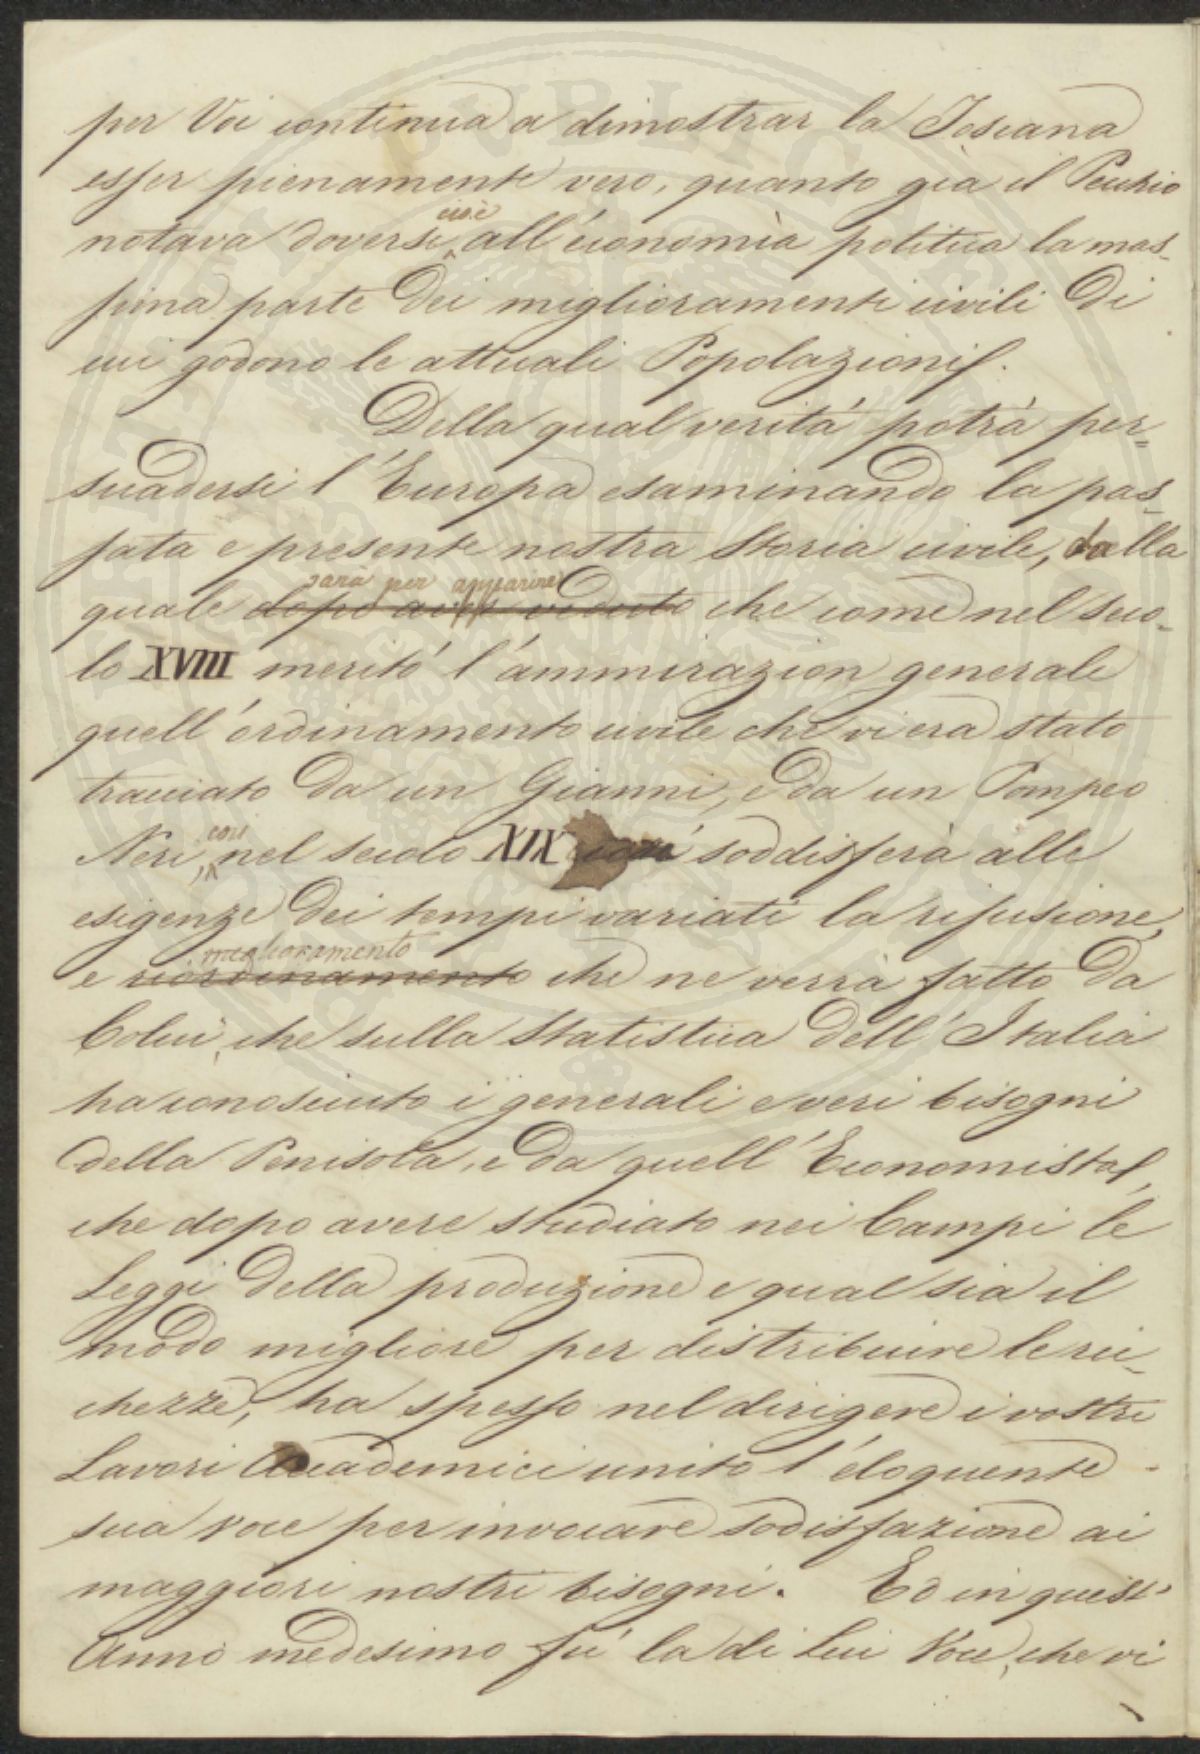 per Voi continua a dimostrar la Toscana
esser pienamente vero, quanto già il Pecchio
notava doversi cioè all'economìa politica la mas-
sima parte dei miglioramenti civili di
cui godono le attuali Popolazioni.
Della qual verità potrà per=
suadersi l'Europa esaminando la pas-
sata e presente nostra Storia civile, dalla
quale dopo aver veduto sarà per apparire che come nel seco-
lo XVIII meritò l'ammirazion generale
quell'ordinamento civile che vi era stato
tracciato da un Gianni, e da un Pompeo
Neri, così nel secolo XIX così soddisferà alle
esigenze dei tempi variati la rifusione,
e riordinamento miglioramento che ne verrà fatto da
Colui, che sulla Statistica dell'Italia
ha conosciuto i generali e veri bisogni
della Penisola, e da quell'Economista,
che dopo avere studiato nei Campi le
Leggi della produzione e qual sia il
modo migliore per distribuire le ric-
chezze, ha spesso nel dirigere i vostri
Lavori Accademici unito l'eloquente
sua voce per invocare sodisfazione ai
maggiori nostri bisogni. Ed in quest'
Anno medesimo fù la di Lui Voce, che vi